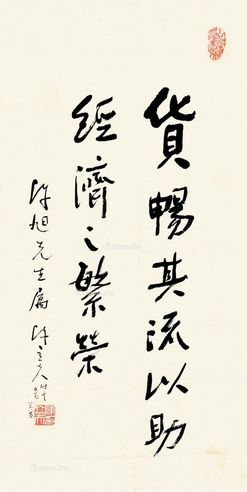 貨暢其流以助
經濟之繁榮
許旭先生屬